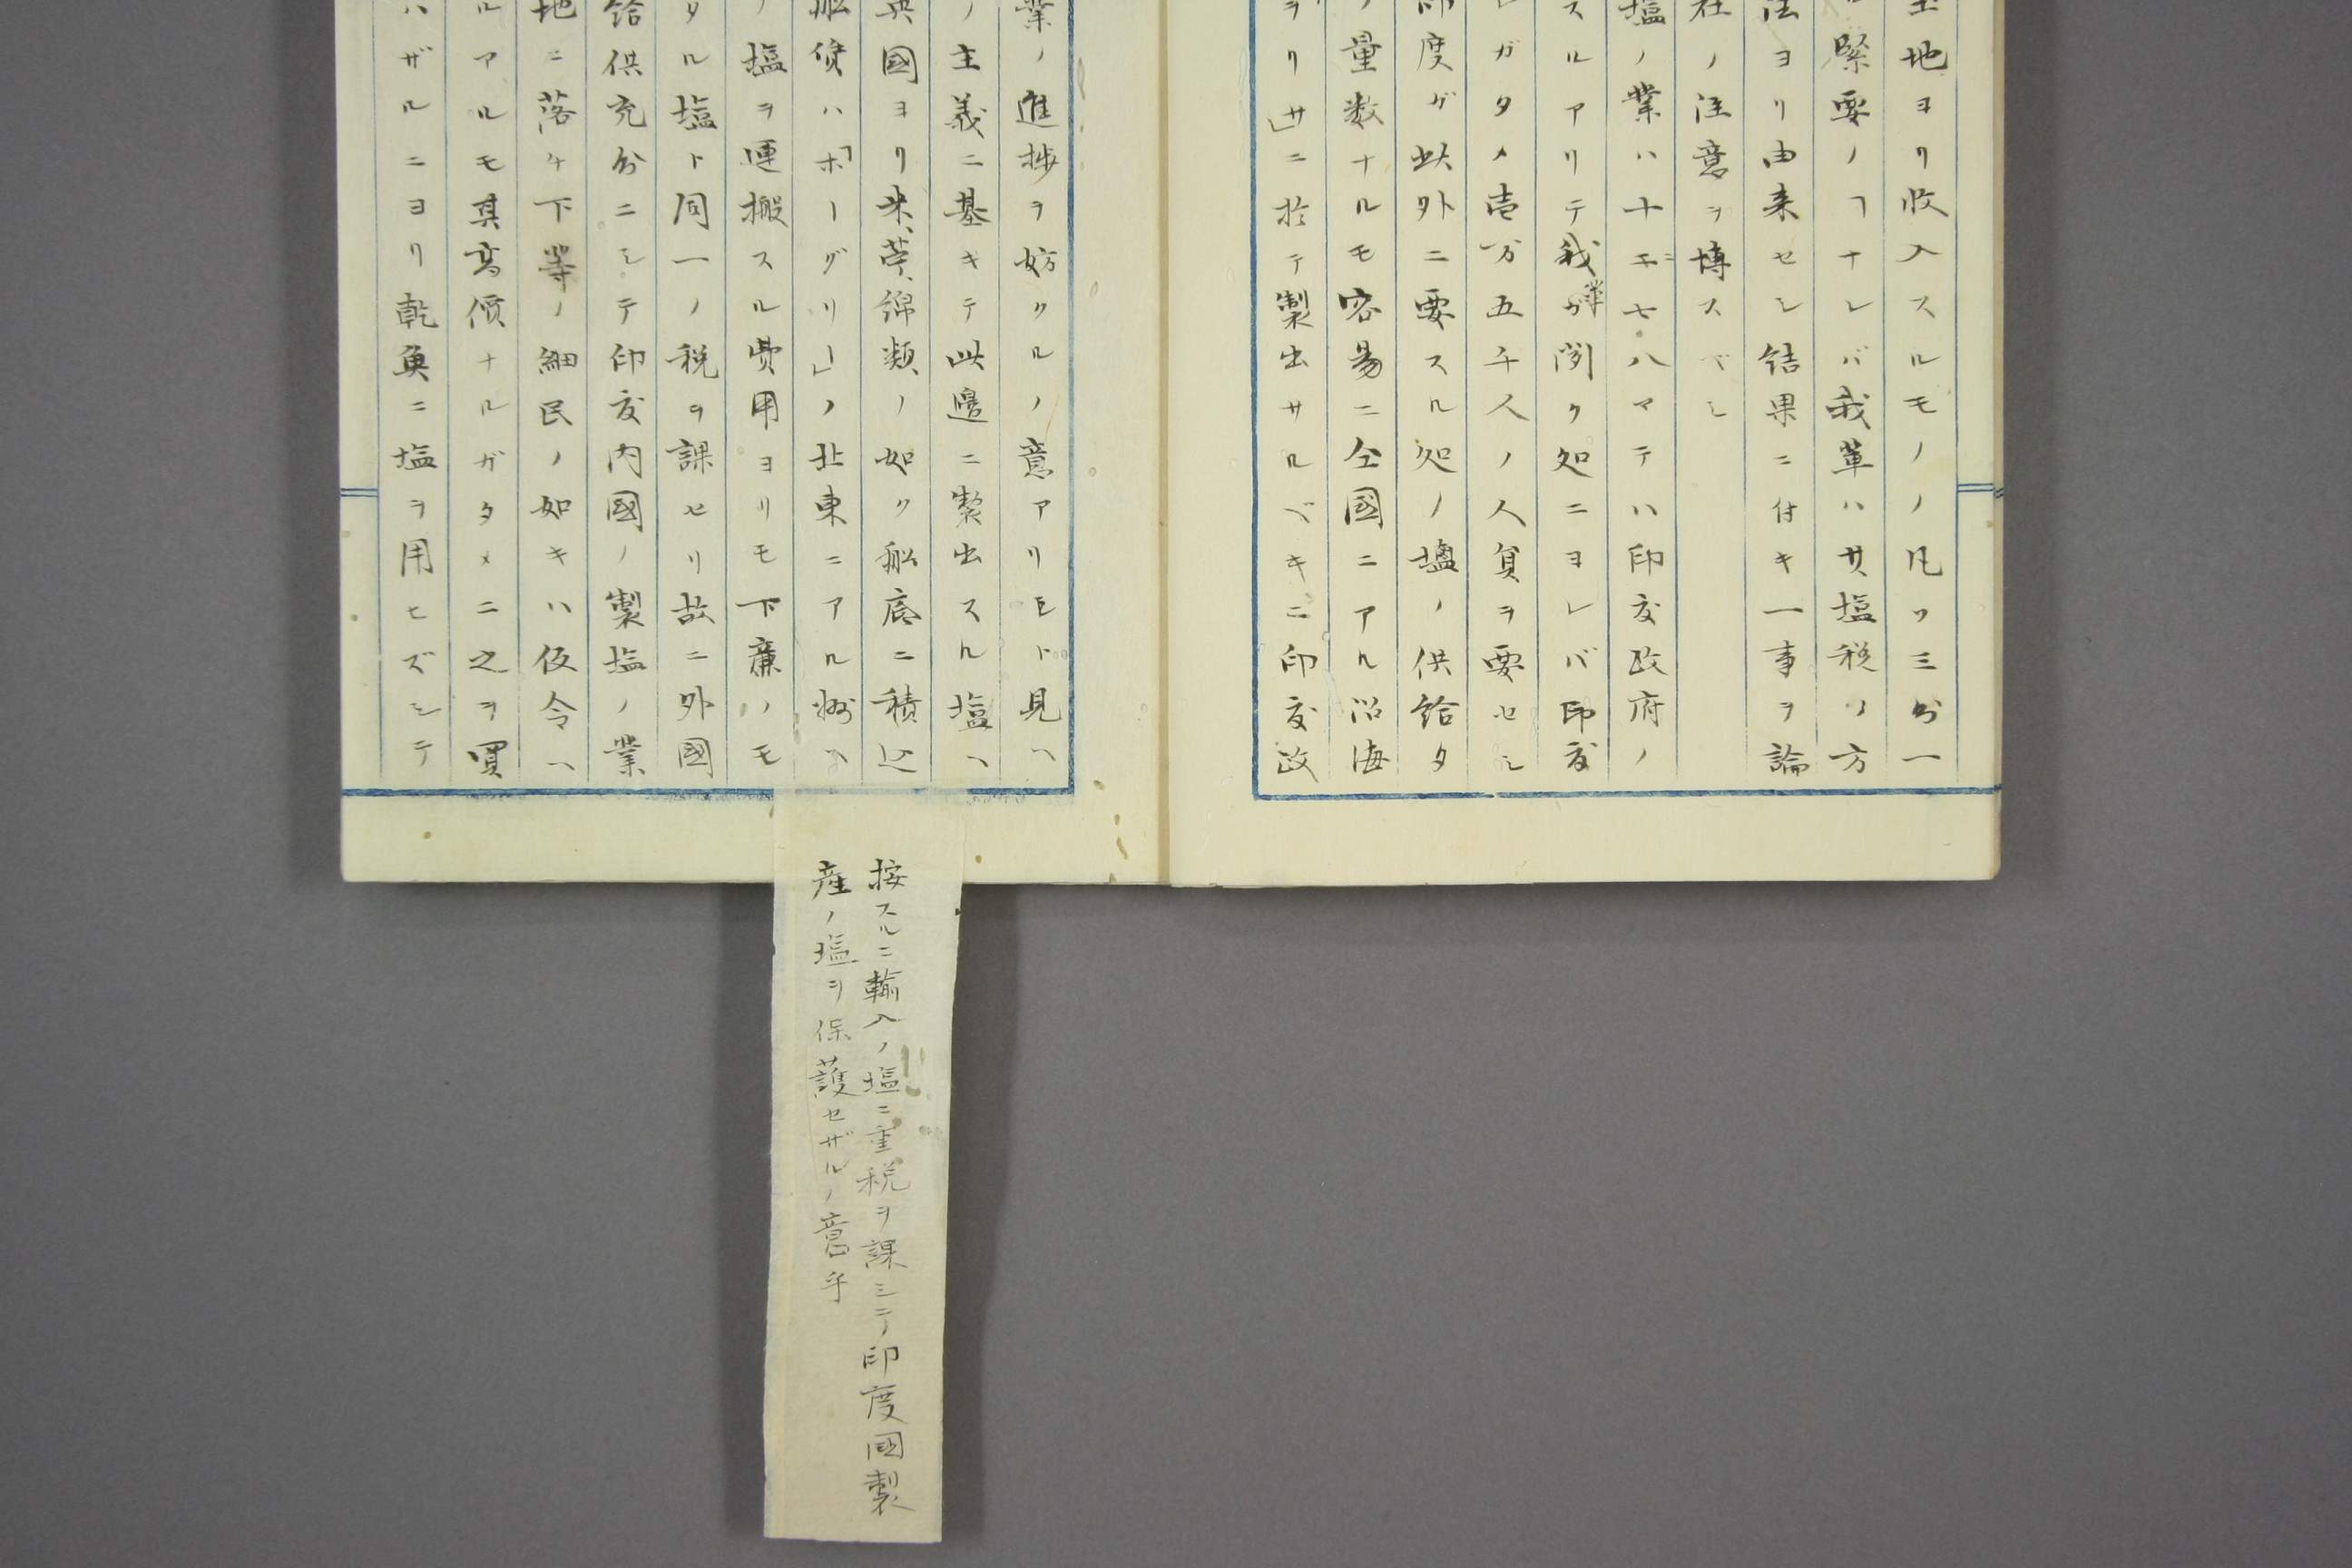 地ヨリ收入スルモノノ凡ソ三分一
緊要ノヿナレバ我輩ハ其塩税ノ方
法ヨリ由来セシ結果ニ付キ一事ヲ論
ノ注意ヲ博スベシ
塩ノ業ハ十二七八マテハ印度政府ノ
スルアリテ我輩ガ聞ク処ニヨレバ印度
ガタメ壱万五千人ノ人員ヲ要セシ
印度ガ此外ニ要スル処ノ塩ノ供給タ
ノ量数ナルモ容易ニ全國ニアル沿海
ヲリサ」ニ於テ製出サルベキニ印度政
業ノ進捗ヲ妨クルノ意アリモト見ヘ
ノ主義ニ基キテ此邊ニ製出スル塩ヘ
英國ヨリ米、莨、綿類ノ如ク船底ニ積込
船賃ハ「ホーグリー」ノ北東ニアル州ヘ
ノ塩ヲ運搬スル費用ヨリモ下廉ノモ
タル塩ト同一ノ税ヲ課セリ故ニ外國
給供充分ニシテ印度内國ノ製塩ノ業
地ニ落ケ下等ノ細民ノ如キハ仮令ヘ
ルアルモ其高價ナルガタメニ之ヲ買
ハザルニヨリ乾魚ニ塩ヲ用ヒズシテ
按スルニ輸入ノ塩ニ重税ヲ課シテ印度國製
産ノ塩ヲ保護セザルノ意乎